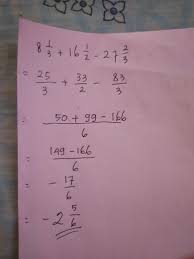 8 1/3 + 16 1/2 - 27 2/3
= 25/3 + 33/2 - 83/3
= 50 + 99 - 166 / 6
= 149 - 166 / 6
= - 17/6
= - 2 5/6